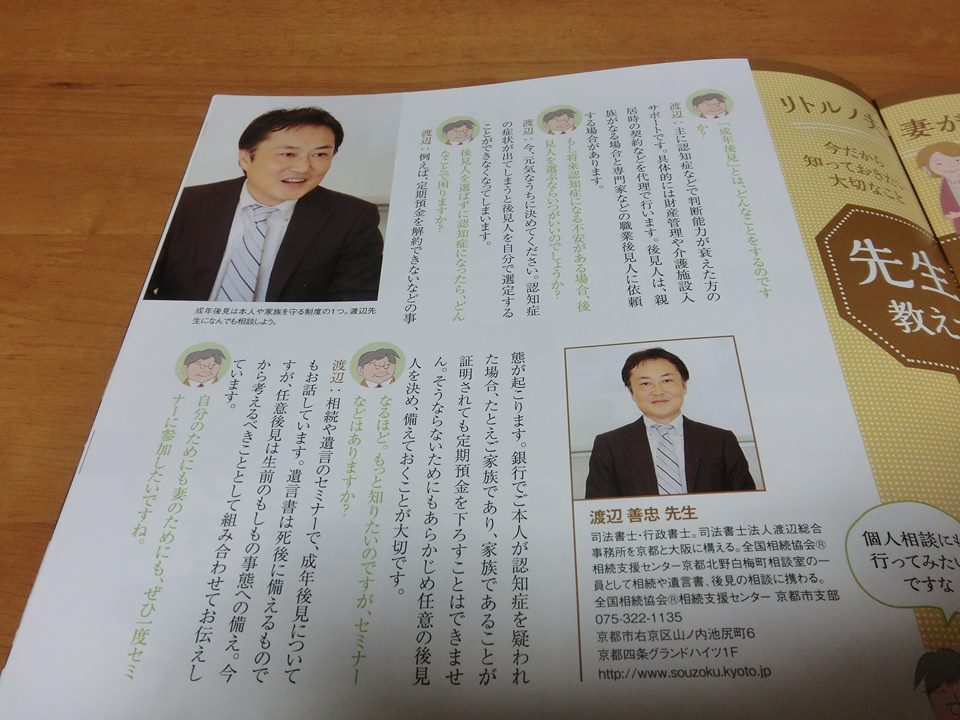 リトルノ
今だから
知っておきたい
大切なこと
妻が
先生
教え
「成年後見」とは、どんなことをするのです
か?
渡辺:主に認知症などで判断能力が衰えた方の
サポートです。具体的には財産管理や介護施設入
居時の契約などを代理で行います。後見人は、親
族がなる場合と専門家などの職業後見人に依頼
する場合があります。
もし将来認知症になる不安がある場合、後
見人を選ぶならいつがいいのでしょうか?
渡辺:今、元気なうちに決めてください。認知症
の症状が出てしまうと後見人を自分で選定する
ことができなくなってしまいます。
後見人を選ばずに認知症になったら、どん
なことで困りますか?
渡辺:例えば、定期預金を解約できないなどの事
成年後見は本人や家族を守る制度の1つ。渡辺先
生になんでも相談しよう。
態が起こります。銀行でご本人が認知症を疑われ
た場合、たとえご家族であり、家族であることが
証明されても定期預金を下ろすことはできませ
ん。そうならないためにもあらかじめ任意の後見
人を決め、備えておくことが大切です。
なるほど。もっと知りたいのですが、セミナー
などはありますか?
渡辺:相続や遺言のセミナーで、成年後見について
もお話しています。遺言書は死後に備えるもので
すが、任意後見は生前のもしもの事態への備え。今
から考えるべきこととして組み合わせてお伝えし
ています。
自分のためにも妻のためにも、ぜひ一度セミ
ナーに参加したいですね。
渡辺 善忠 先生
司法書士・行政書士。司法書士法人渡辺総合
事務所を京都と大阪に構える。全国相続協会Ⓡ
相続支援センター京都北野白梅町相談室の一
員として相続や遺言、後見の相談に携わる。
全国相続協会Ⓡ相続支援センター 京都市支部
075-322-1135
京都市右京区山ノ内池尻町6
京都四条グランドハイツ1F
http://www.souzoku.kyoto.jp
個人相談にも
行ってみたい
ですな